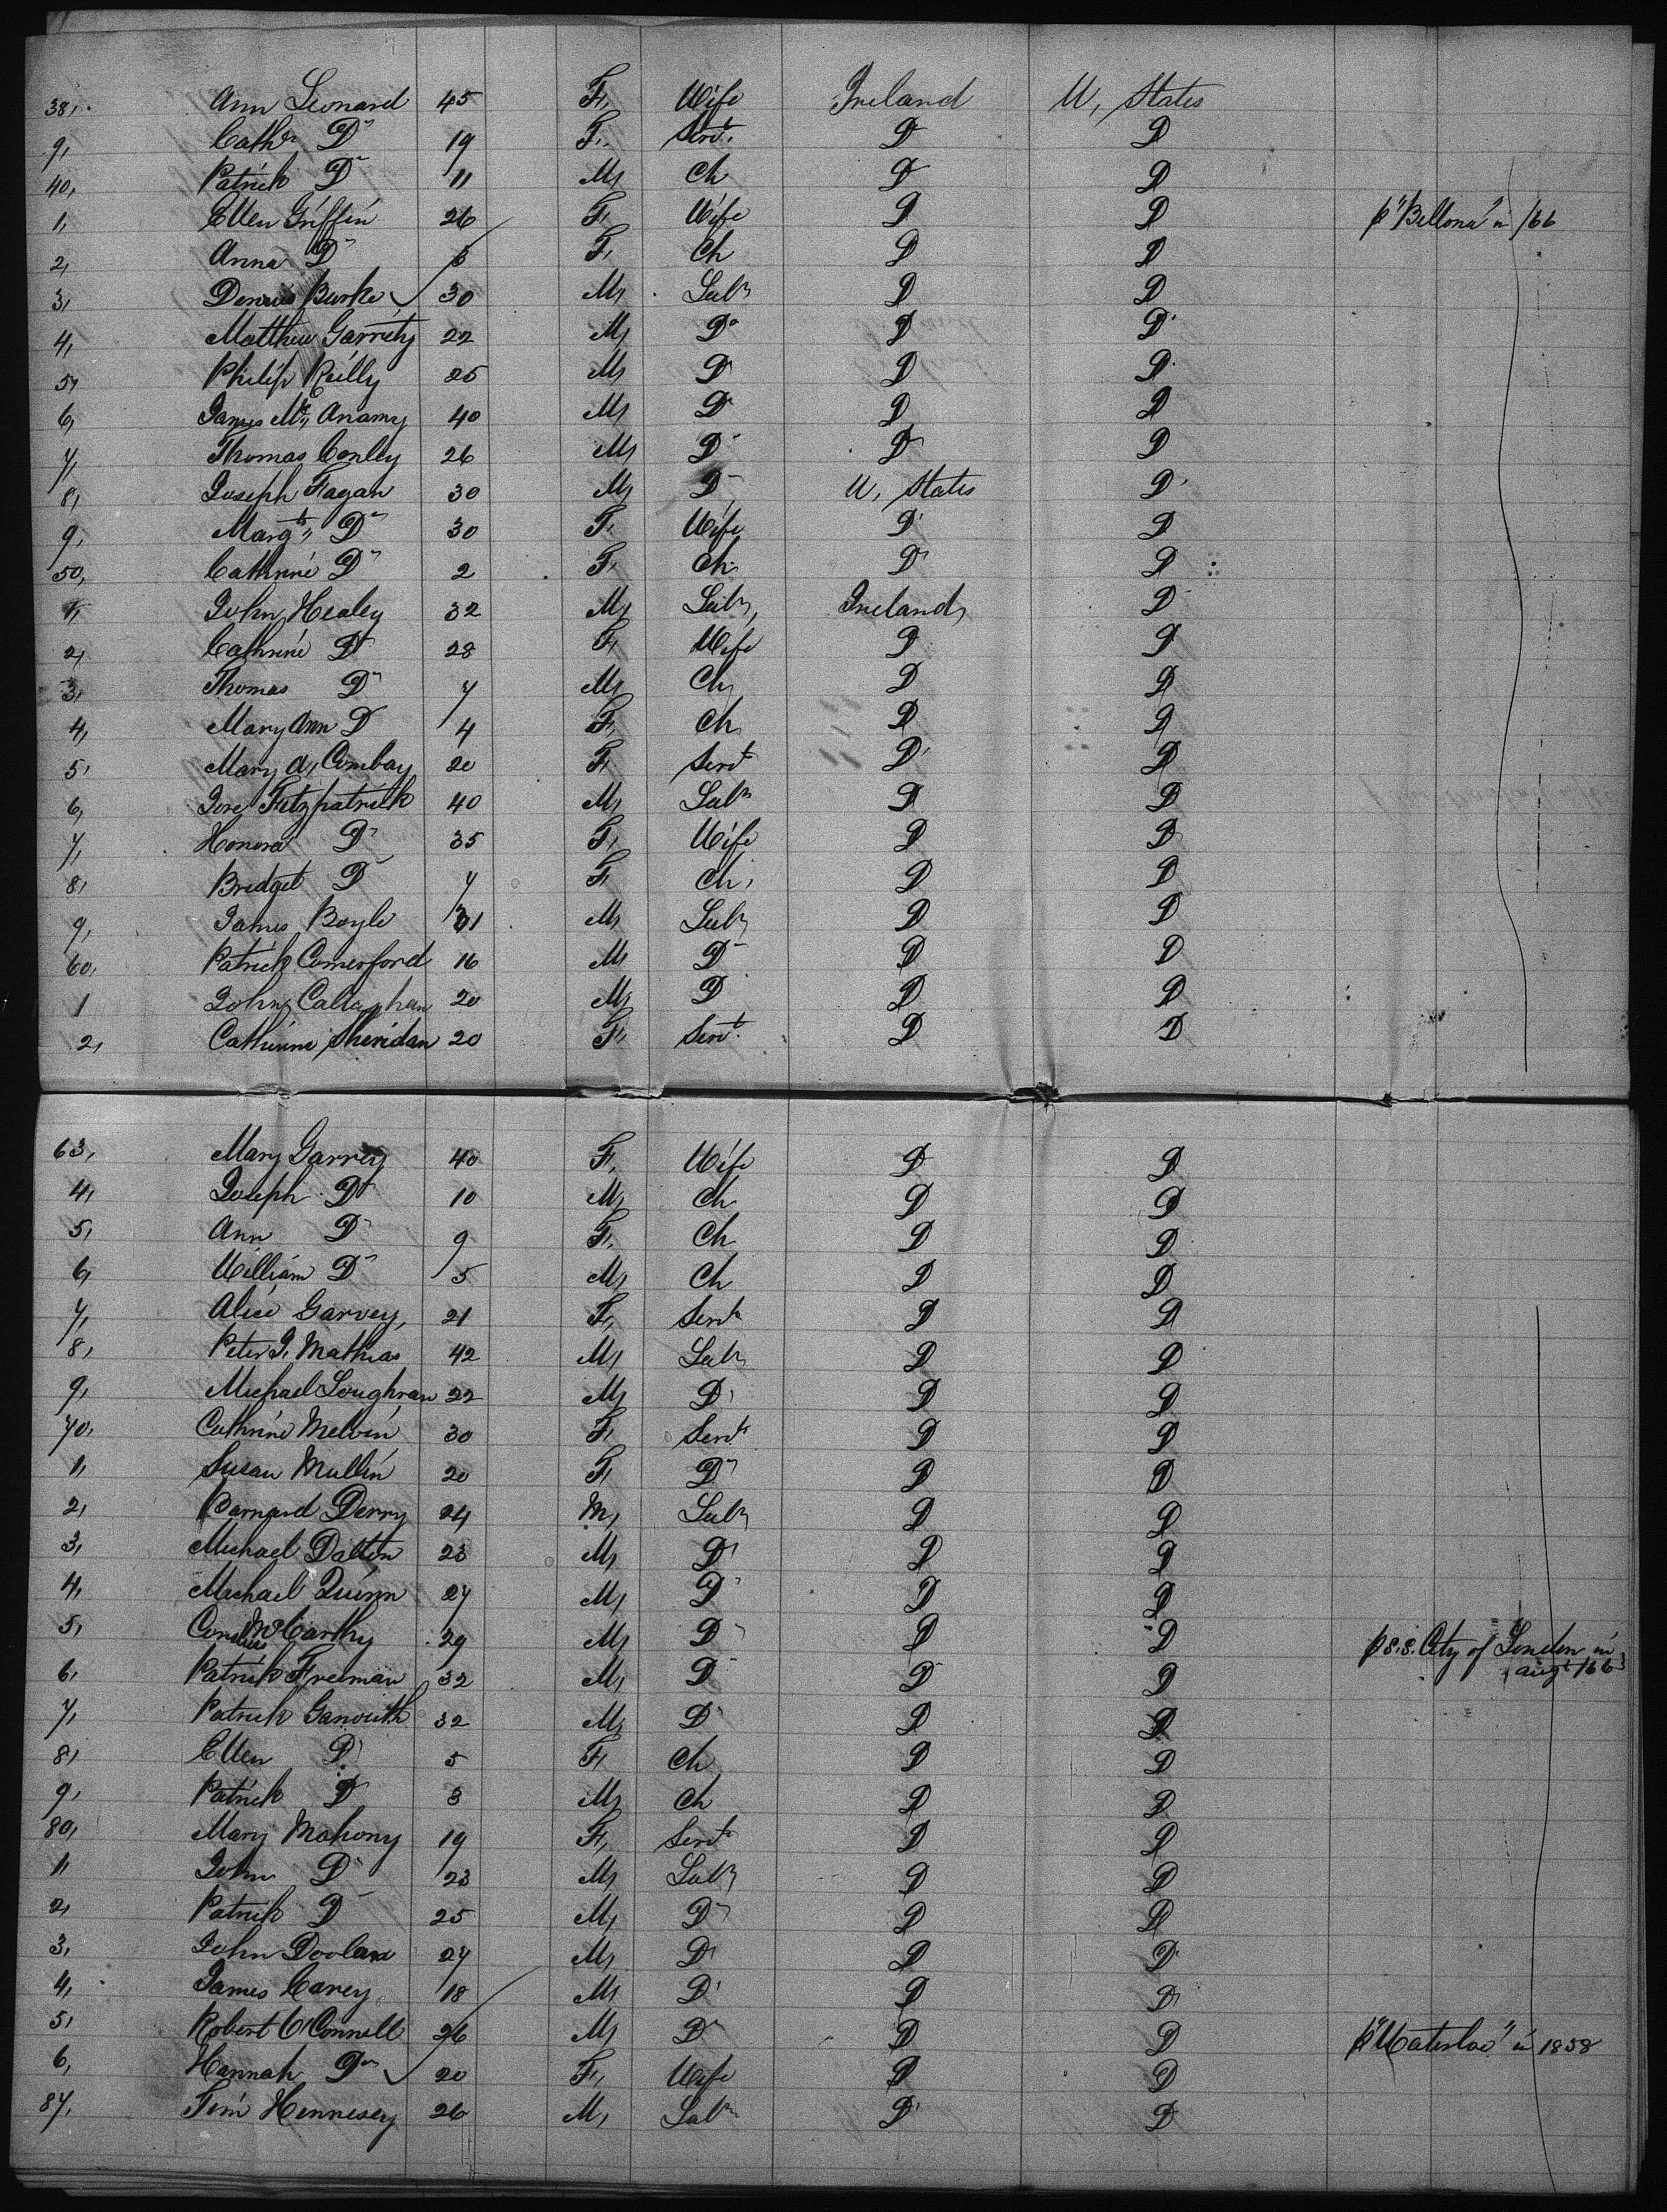 38, Ann Leonard 45 F, Wife Ireland U, States
9, Cathn Do 19 F, Servt. D D
40, Patrick Do 11 M, Ch D D
1, Ellen Griffin 26 F, Wife D D p "Bellona" in /66
2, Anna Do 6 F, Ch D D
3, Dennis Burke 30 M, Labr D D
4, Matthew Garrity 22 M, Do D D
5, Philip Reilly 25 M, D D D
6, James Mc,, Anamy 40 M, D D D
7, Thomas Conley 26 M, D D D
8, Joseph Fagan 30 M, D U, States D
9, Margt,, Do 30 F, Wife D D
50, Cathrine Do 2 F, Ch D D
1, John Healey 32 M, Labr, Ireland, D
2, Cathrine Do 28 F, Wife D D
3, Thomas Do 7 M, Ch, D D
4, Mary Ann D 4 F, Ch D D
5, Mary A, Conboy 20 F, Servt D D
6, Jose, Fitzpatrick 40 M, Labr D D
7, Honora Do 35 F, Wife D D
8, Bridget D 7 F, Ch, D D
9, James Boyle 31 M, Labr D D
60, Patrick Comerford 16 M, D D D
1 John Callaghan 20 M, D D D
2, Cathrine Sheridan 20 F, Servt. D D
63, Mary Garvey 40 F, Wife D D
4, Joseph Do 10 M, Ch D D
5, Ann Do 9 F, Ch D D
6, William Do 5 M, Ch D D
7, Alice Garvey, 21 F, Servt D D
8, Peter J, Mathias 42 M, Labr D D
9, Michael Loughran 22 M, D D D
70, Cathrine Melvin 30 F, Servt D D
1, Susan Mullin 20 F, Do D D
2, Barnard Derry 24 M, Labr D D
3, Michael Dalton 23 M, D D D
4, Michael Quinn 27 M, D D D
5, Cornelius McCarthy 29 M, D D D p S.S. City of London in
6, Patrick Freeman 32 M, D D D augt /66
7, Patrick Garvuth 32 M, D D D
8, Ellen D 5 F, Ch D D
9, Patrick D 3 M, Ch D D
80, Mary Mahony 19 F, Servt D D
1, John D 23 M, Labr D D
2, Patrick D 25 M, Do D D
3, John Doolan 27 M, D D D
4, James Carey 18 M, D D D
5, Robert O'Connell 26 M, D D D p "Waterloo" in 1858
6, Hannah Do 20 F, Wife D D
87, Tim Hennesey 26 M, Labr D D